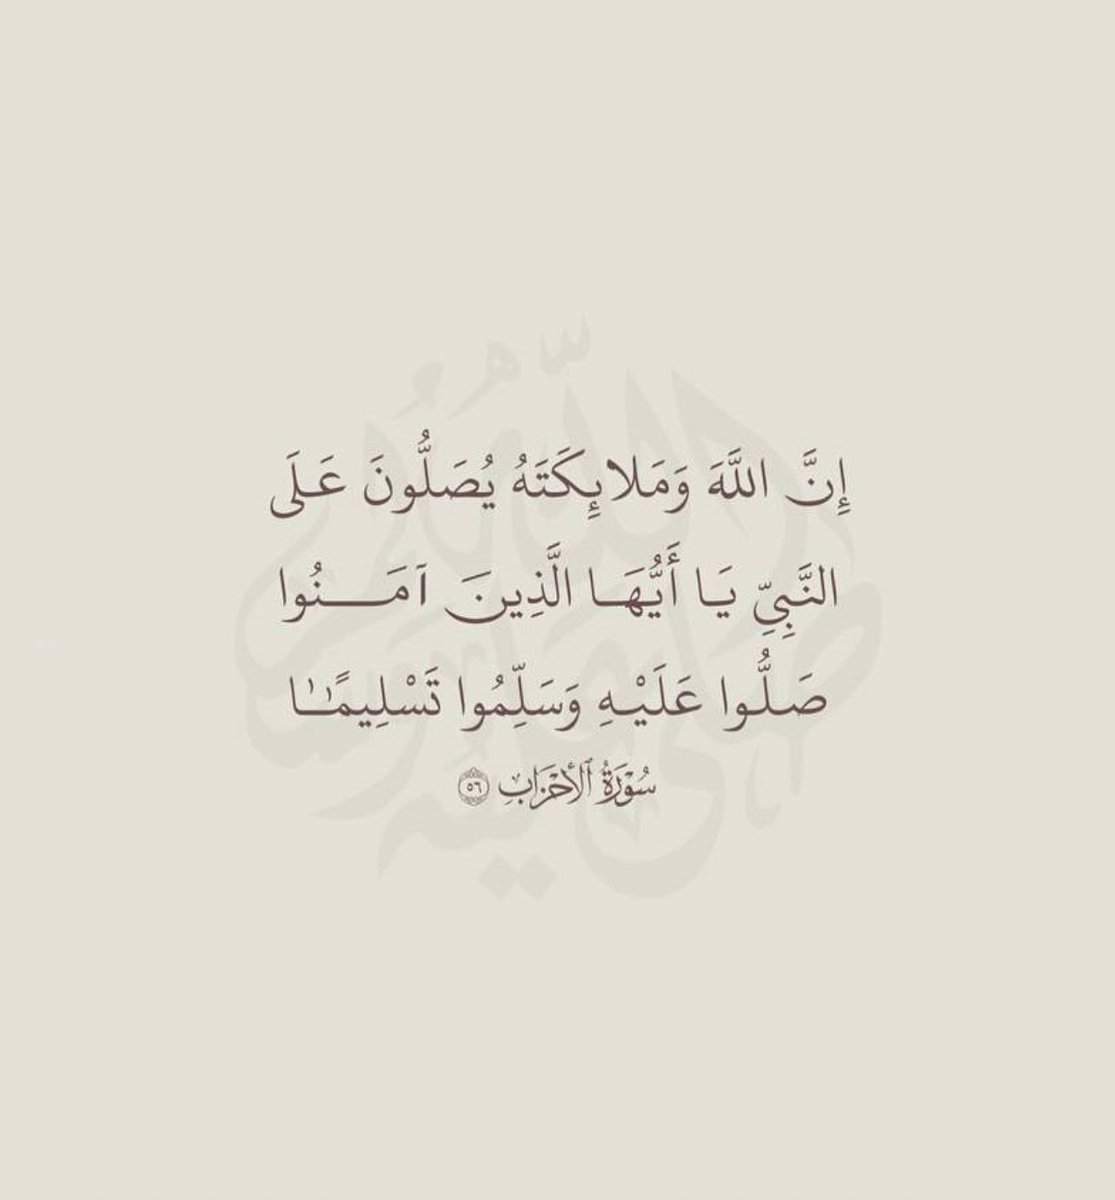 إِنَّ اللَّهَ وَمَلائِكَتَهُ يُصَلُّونَ عَلَى
النَّبِيِّ يَا أَيُّهَا الَّذِينَ آمَنُوا
صَلُّوا عَلَيْهِ وَسَلِّمُوا تَسْلِيمًا
سُورَةُ ٱلأَحْزَابِ ٥٦